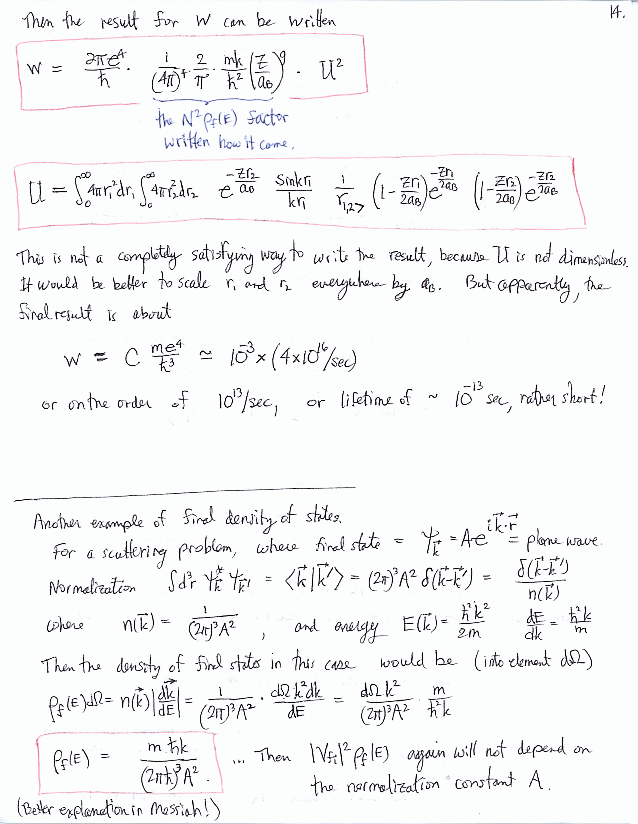 14.
Then the result for W can be written
W = 2πe⁴/ħ · 1/(4π)⁴ · 2/π · mk/ħ² (Z/a_B)⁹ · U²
the N²ρ_f(E) factor
written how it came.
U = ∫₀^∞ 4πr₁²dr₁ ∫₀^∞ 4πr₂²dr₂ e^(-Zr₂/a₀) sinkr₁/kr₁ 1/r₁,₂> (1 - Zr₁/2a_B) e^(-Zr₁/2a_B) (1 - Zr₂/2a_B) e^(-Zr₂/2a_B)
This is not a completely satisfying way to write the result, because U is not dimensionless.
It would be better to scale r₁ and r₂ everywhere by a_B. But apparently, the
final result is about
W ≈ C me⁴/ħ³ ≃ 10⁻³ × (4×10¹⁶/sec)
or on the order of 10¹³/sec, or lifetime of ~ 10⁻¹³ sec, rather short!
Another example of final density of states.
For a scattering problem, where final state = ψ_k⃗ = Ae^(ik⃗·r⃗) = plane wave.
Normalization ∫d³r ψ*_k⃗ ψ_k⃗' = <k⃗|k⃗'> = (2π)³A² δ(k⃗-k⃗') = δ(k⃗-k⃗')/n(k⃗)
where n(k⃗) = 1/(2π)³A² , and energy E(k⃗) = ħ²k²/2m dE/dk = ħ²k/m
Then the density of final states in this case would be (into element dΩ)
ρ_f(E)dΩ = n(k⃗)|dk⃗/dE| = 1/(2π)³A² · dΩ k²dk/dE = dΩ k²/(2π)³A² · m/ħ²k
ρ_f(E) = mħk/(2πħ)³A² . ... Then |V_fi|² ρ_f(E) again will not depend on
the normalization constant A.
(Better explanation in Messiah!)